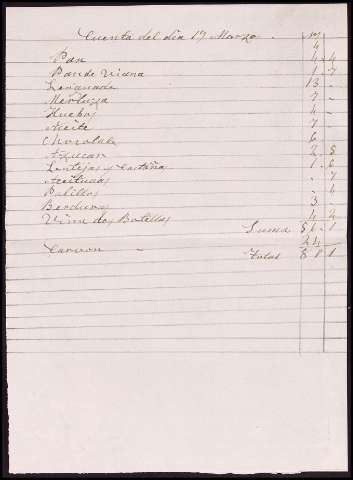 Cuenta del dia 17 Marzo.
Pan 4 4
Pan de Viena 1 7
13 -
Merluzza 7 -
Huebos 4 -
Aceite 7 -
Chocolate 6
Azucar 2 8
Lentejas y Castaña 1 6
Aceitunas - 7
Palillos - 4
Berduras 3 -
Vino dos Botellas 4 2
Suma 1
Carbon - 24
Total 8 1 1